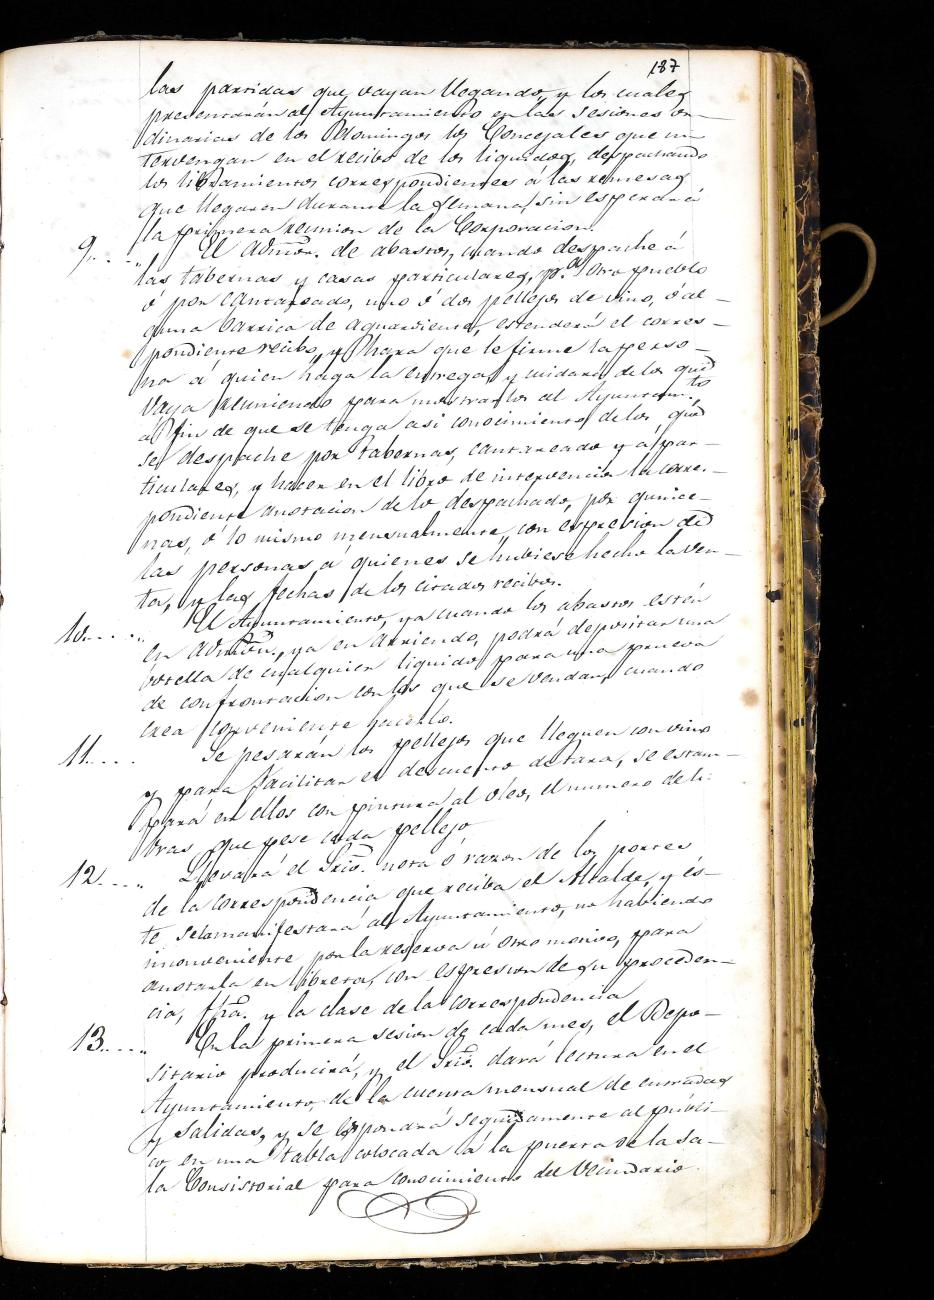 187
las partidas que vayan llegando y los cuales
presentarán al Ayuntamiento en las sesiones or-
dinarias de los Domingos los Concejales que in-
tervengan en el recibo de los liquidos, despachando
los libramientos correspondientes á las remesas
que llegaren durante la semana, sin esperar á
la primera reunion de la Corporacion.
9..... El Admon. de abastos, cuando despache á
las tabernas y casas particulares, pa. otro pueblo
ó por cantareado, uno ó dos pellejos de vino, ó al-
guna barrica de aguardiente, estenderá el corres-
pondiente recibo, y hara que le firme la perso-
na á quien haga la entrega, y cuidara de los que
vaya reuniendo para mostrarlos al Ayuntam.to
a fin de que se tenga asi conocimiento de los que
se despache por tabernas, cantareado y á par-
ticulares, y hacer en el libro de intervencion la corres-
pondiente anotacion de lo despachado, por quince-
nas, ó lo mismo mensualmente, con espresion de
las personas á quienes se hubiese hecho la ven-
ta, y las fechas de los citados recibos.
10..... El Ayuntamiento, ya cuando los abastos estén
en Admon., ya en arriendo, podrá depositar una
botella de cualquier liquido para una prueva
de confrontacion con los que se vendan, cuando
crea conveniente hacerlo.
11..... Se pesaran los pellejos que lleguen con vino
y para facilitar el descuento de tara, se estam-
pará en ellos con pintura al oleo, el numero de li-
bras que pese cada pellejo
12..... Llevará el Srio. nota ó razon de los portes
de la correspondencia que reciba el Alcalde, y és-
te se la manifestará al Ayuntamiento, no habiendo
inconveniente por la reserva ú otro motivo, para
anotarla en libreta, con espresion de su proceden-
cia, fha. y la clase de la correspondencia
13..... En la primera sesion de cada mes, el Depo-
sitario producirá, y el Srio. dará lectura en el
Ayuntamiento, de la cuenta mensual de entradas
y salidas, y se espondrá seguidamente al públi-
co en una tabla colocada á la puerta de la Sa-
la Consistorial para conocimiento del Vecindario.